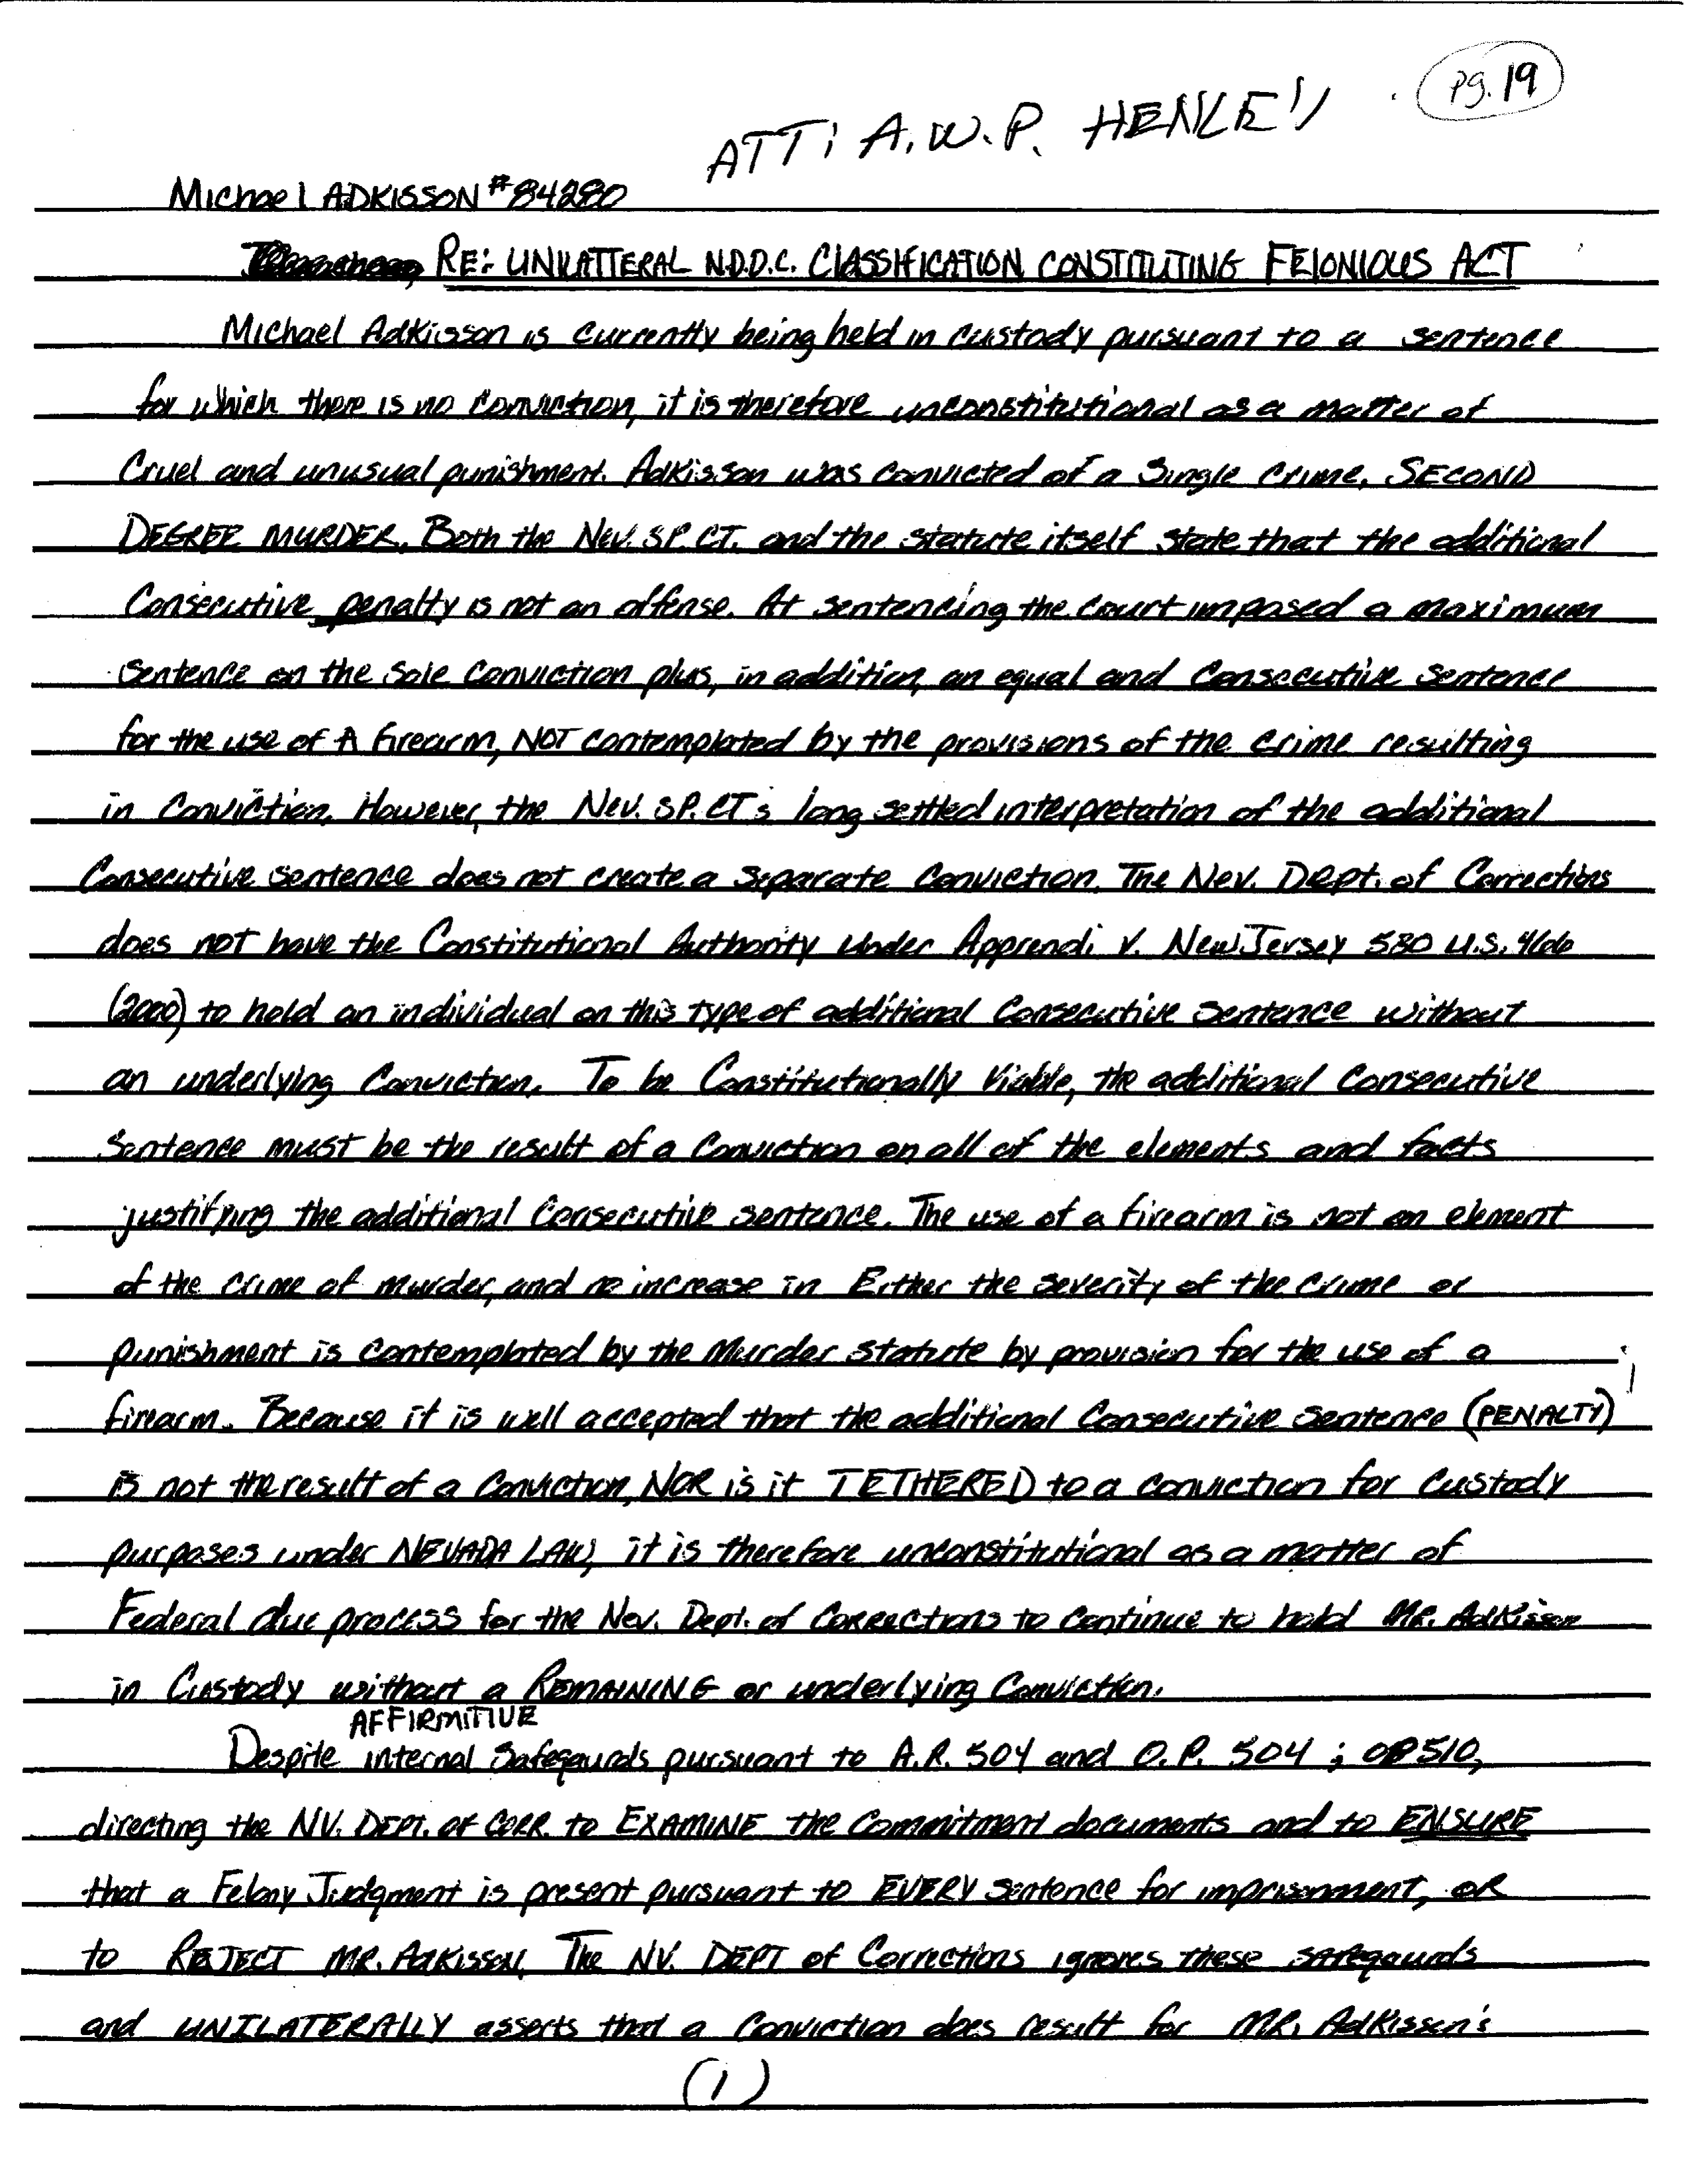 pg. 19
ATT: A.W.P. HENLEY
Michael ADKISSON #84280
RE: UNILATTERAL N.D.D.C. CLASSIFICATION CONSTITUTING FELONIOUS ACT
Michael Adkisson is currently being held in custody pursuant to a sentence
for which there is no conviction, it is therefore unconstitutional as a matter of
Cruel and unusual punishment. Adkisson was convicted of a Single crime, SECOND
DEGREE MURDER. Both the Nev. SP. CT. and the statute itself state that the additional
Consecutive penalty is not an offense. At sentencing the court imposed a maximum
sentence on the sole conviction plus, in addition, an equal and Consecutive Sentence
for the use of A firearm, NOT contemplated by the provisions of the crime resulting
in Conviction. However, the Nev. SP. CT's long settled interpretation of the additional
Consecutive sentence does not create a separate Conviction. The Nev. Dept. of Corrections
does not have the Constitutional Authority Under Apprendi v. New Jersey 530 U.S. 466
(2000) to hold an individual on this type of additional Consecutive Sentence without
an underlying Conviction. To be Constitutionally Viable, the additional Consecutive
Sentence must be the result of a Conviction on all of the elements and facts
justifying the additional Consecutive sentence. The use of a firearm is not an element
of the crime of murder, and no increase in Either the severity of the crime or
punishment is contemplated by the Murder statute by provision for the use of a
firearm. Because it is well accepted that the additional Consecutive sentence (PENALTY)
is not the result of a Conviction, NOR is it TETHERED to a conviction for Custody
purposes under NEVADA LAW, it is therefore unconstitutional as a matter of
Federal due process for the Nev. Dept. of Corrections to continue to hold MR. Adkisson
in Custody without a REMAINING or underlying Conviction.
AFFIRMITIVE
Despite internal Safegaurds pursuant to A.R. 504 and O.P. 504 ; OP510,
directing the NV. DEPT. of CORR. to EXAMINE the Commitment documents and to ENSURE
that a Felony Judgment is present pursuant to EVERY Sentence for imprisonment, OR
to REJECT MR. Adkisson. The NV. DEPT of Corrections ignores these safegaurds
and UNILATERALLY asserts that a Conviction does result for MR. Adkisson's
(1)